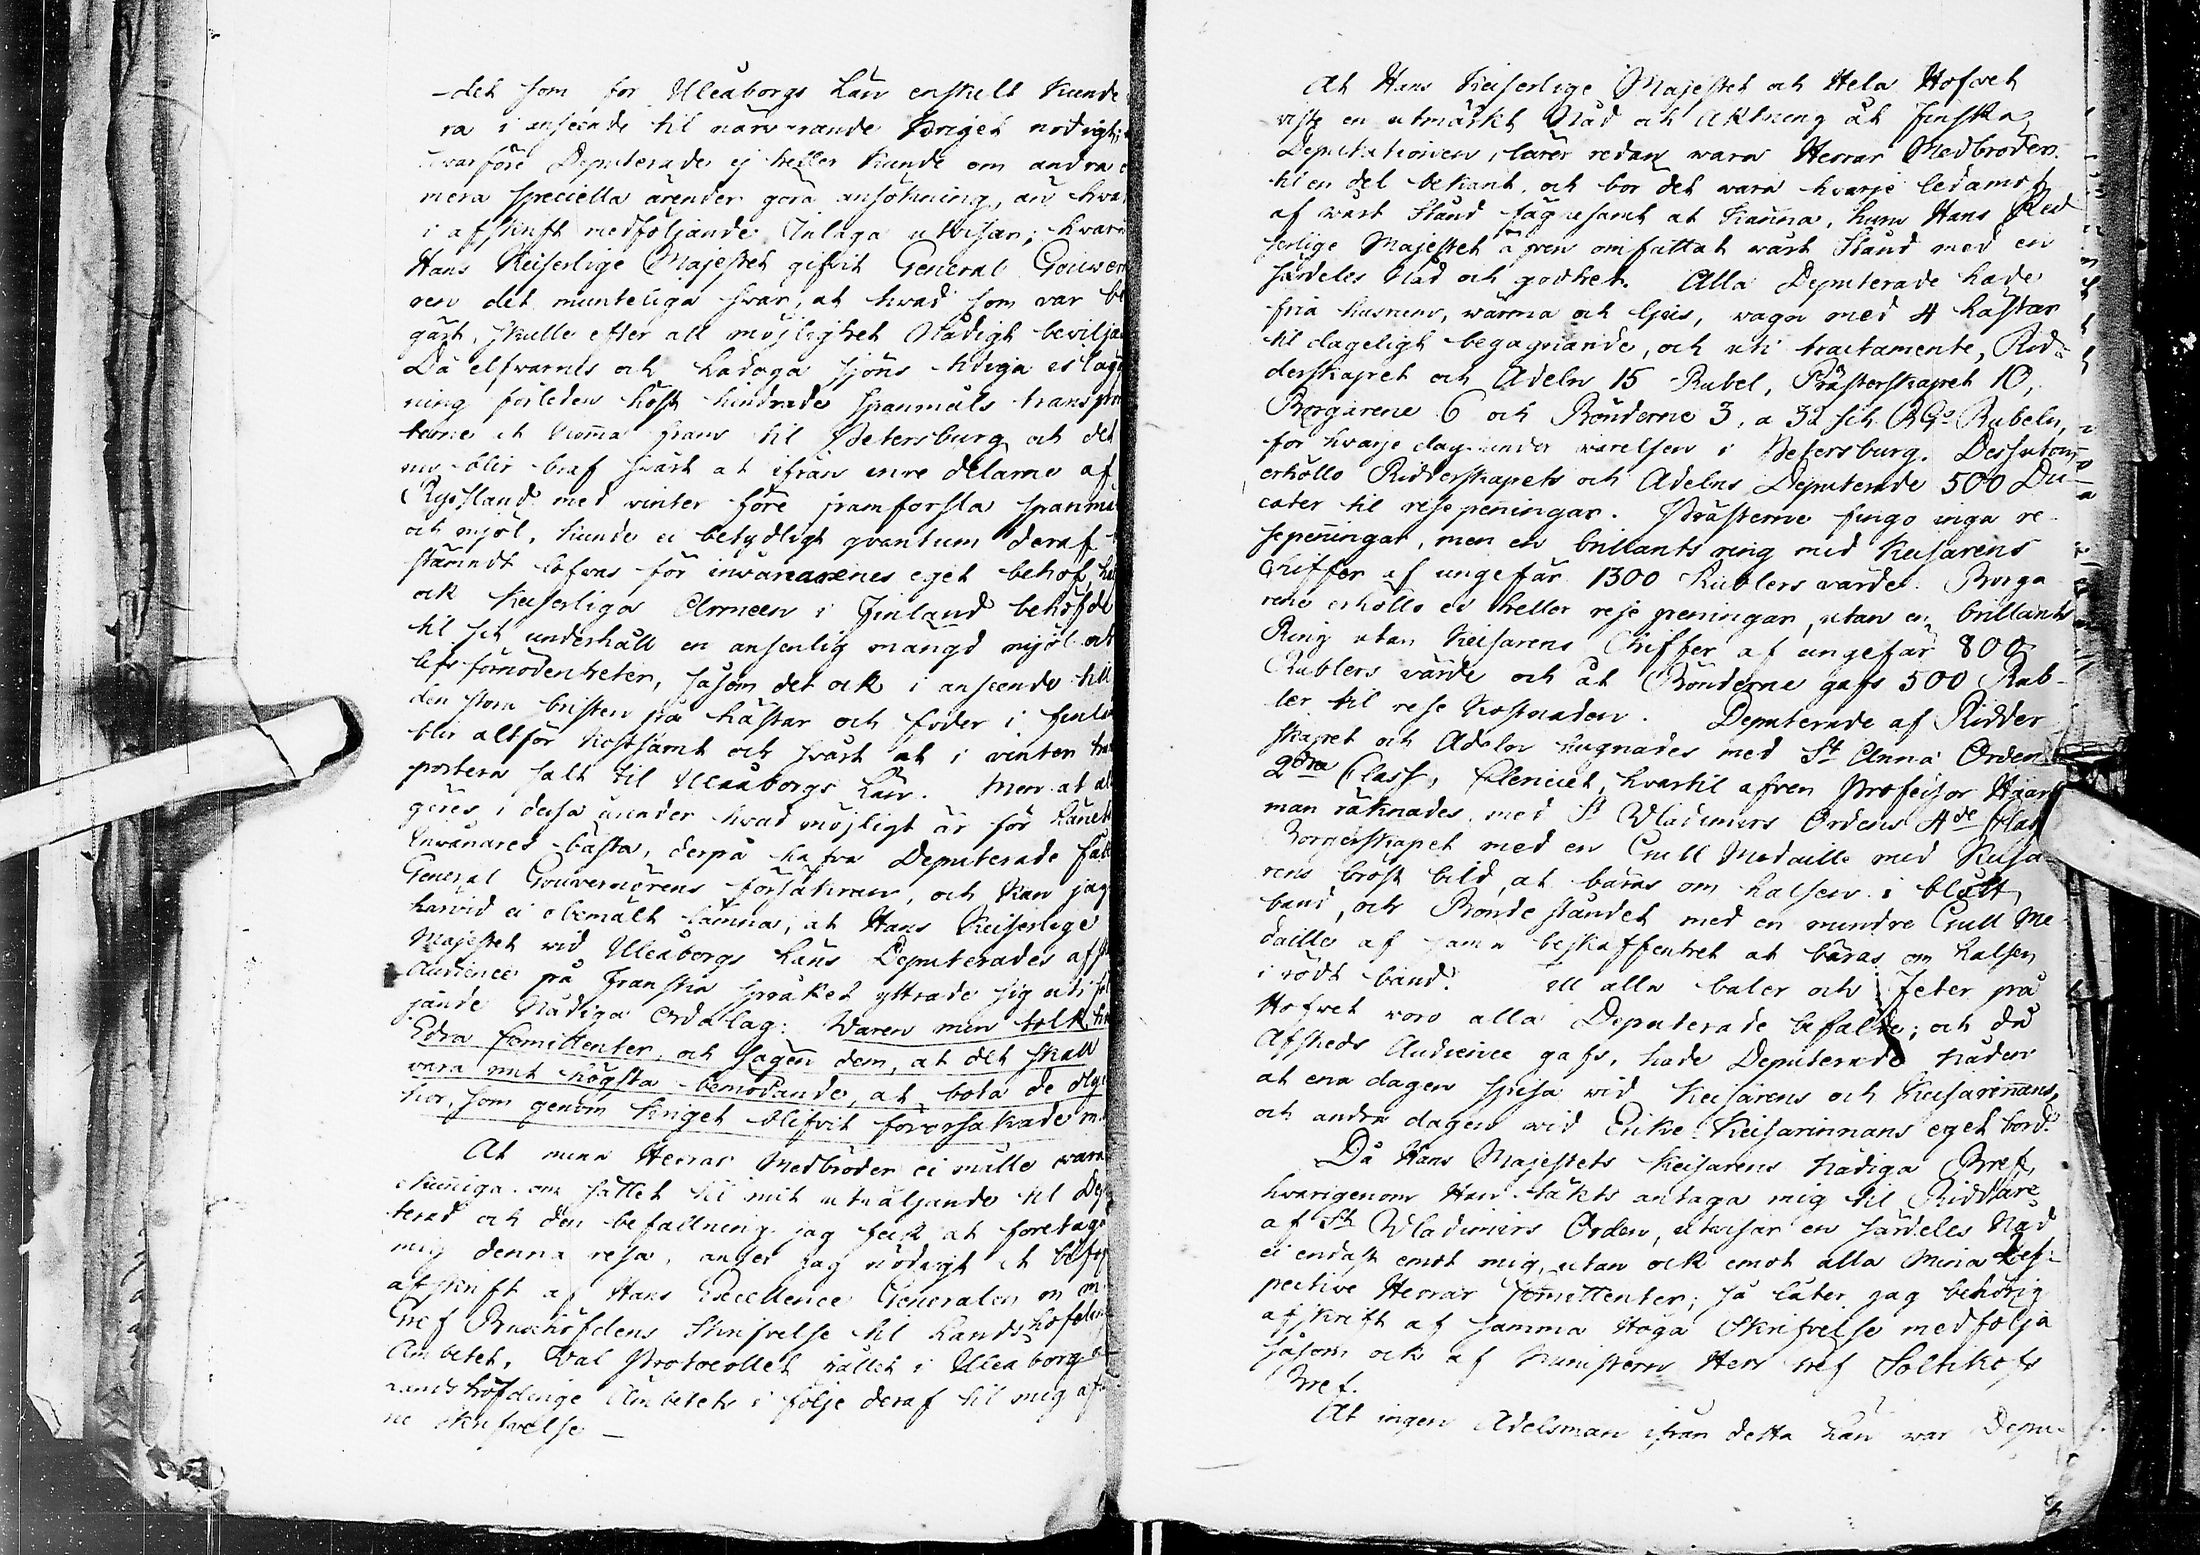 -det som för Uleåborgs Län enskilt kunde
ra i anseende til närwarande Kriget nödigt,
hvarföre Deputerade ej heller kunde om andra
mera speciella ärender göra ansökning, än hwad
i afskrift medföljande Inlaga utvisar; hvar
Hans Keiserlige Majestet gifvit General Gouver
ren det munteliga svar, at hvad som var be
gärt, skulle efter all möjlighet Nådigt beviljas
Då elfvarnes och Ladoga sjöns tidiga islägg
ning förleden höst hindrade spanmåls transpor
terne at komma fram til Petersburg och det
nu blir braf svårt at ifrån inre delarne af
Ryssland med vinter före framforsla spanmål
och mjöl, kunde ei betydligt qvantum deraf
stämndt lofvas för invånarenes eget behof,
ock Keiserliga Armeen i Finland behöfde
til sit underhåll en ansenlig mängd mjöl och
lifsförnödenheter, såsom det ock i anseende till
den stora bristen på hästar och foder i Finla
blir altför kostsamt och svårt at i vinter tran
portera salt til Uleåborgs Län. Men at alt
göres i dessa ärender hvad möjligt är för Länets
Invånares bästa, derpå hafva Deputerade fått
General Gouvernörens försäkran, och kan jag
härvid ei obemält lämna, at Hans Keiserlige
Majestet vid Uleåborgs Läns Deputerades afsk
Audience på Franska språket yttrade sig uti föl
jande Nådiga Ordalag: Waren min tolk hos
Edra Comittenter, och sägen dem, at det skall
vara mit högsta bemödande, at bota de olyc
kor, som genom kriget blifvit förorsakade
At mina Herrar Medbröder ei måtte vara
okunniga om sättet til mit utväljande til Depu
terad och den befallning jag feck at företaga
mig denna resa, anser jag nödigt at bifoga
afskrift af Hans Excellence Generalen
Gref Buxhöfdens Skrifvelse til Landshöfdinge
Ambetet, Val Protocollet hållet i Uleåborg
Landshöfdinge Ambetets i följe deraf til mig af
ne skrifvelse —
At Hans Keiserlige Majestet och Hela Hofvet
viste en utmärkt Nåd och Aktning åt Finska
Deputationen, lärer redan wara Herrar Medbröder
til en del bekant, och bör det wara hvarje ledamot
af wårt Stånd fägnesamt at känna, huru Hans Kei
serlige Majestet äfven omfattat wårt Stånd med en
särdeles Nåd och godhet. Alla Deputerade hade
fria husrum, värma och ljus, vagn med 4 hästar
til dageligt begagnande, och uti tractamente, Rid-
derskapet och Adeln 15 Rubel, Prästerskapet 10,
Borgarene 6 och Bönderne 3, a 32 sch RGs Rubeln,
för hvarje dag under varelsen i Petersburg. Dessutom
erhöllo Ridderskapets och Adelns Deputerade 500 Du-
cater til resepenningar. Prästerne fingo inga re-
sepenningar, men en brillants ring med Keisarens
Chiffer af ungefär 1300 Rublers värde. Borga
rene erhöllo ei heller rese penningar, utan en brillants
Ring utan Keisarens Chiffer af ungefär 800
Rublers värde och åt Bönderne gafs 500 Rub-
ler til rese kostnaden. Deputerade af Ridder
skapet och Adeln hugnades med St Anna Orden
2dra Class, Clericiet, hvartil äfven Professor Häart
man räknades, med St Wladimirs Ordens 4de Class
Borgerskapet med en Gull Medaille med Keisa-
rens bröst bild, at bäras om halsen i blått
band, och Bonde ståndet med en mindre Gull Me-
daille af samma beskaffenhet at bäras om halsen
i rödt band. Til alla baler och Feter på
Hofvet voro alla Deputerade befalde; och då
Afskeds Audience gafs, hade Deputerade nåden
at ena dagen spisa vid Keisarens och Keisarinnans,
och andra dagen vid Enke Keisarinnans eget bord.
Då Hans Majestets Keisarens nådiga Bref,
hvarigenom Han täkts antaga mig til Riddare
af St Wladimirs Orden, utvisar en särdeles Nåd
ei endast emot mig, utan ock emot alla Mina Res-
pective Herrar Comittenter; så låter jag behörig
afskrift af samma Höga Skrifvelse medfölja
såsom ock af Ministern Herr Gref Soltikofs
Bref.
At ingen Adelsman ifrån detta Län war Depu-